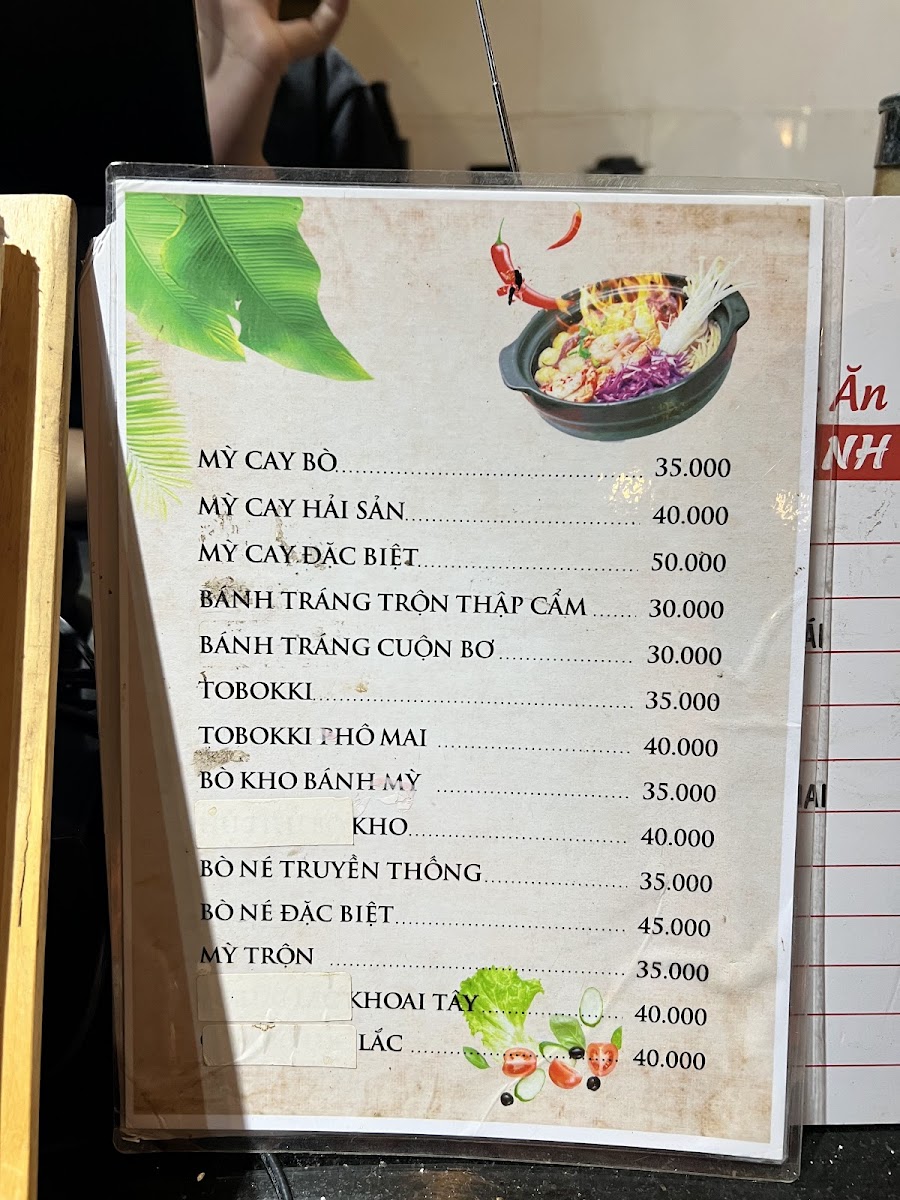 MỲ CAY BÒ 35.000
MỲ CAY HẢI SẢN 40.000
MỲ CAY ĐẶC BIỆT 50.000
BÁNH TRÁNG TRỘN THẬP CẨM 30.000
BÁNH TRÁNG CUỘN BƠ 30.000
TOBOKKI 35.000
TOBOKKI PHÔ MAI 40.000
BÒ KHO BÁNH MỲ 35.000
KHO 40.000
BÒ NÉ TRUYỀN THỐNG 35.000
BÒ NÉ ĐẶC BIỆT 45.000
MỲ TRỘN 35.000
KHOAI TÂY 40.000
LẮC 40.000
Ăn